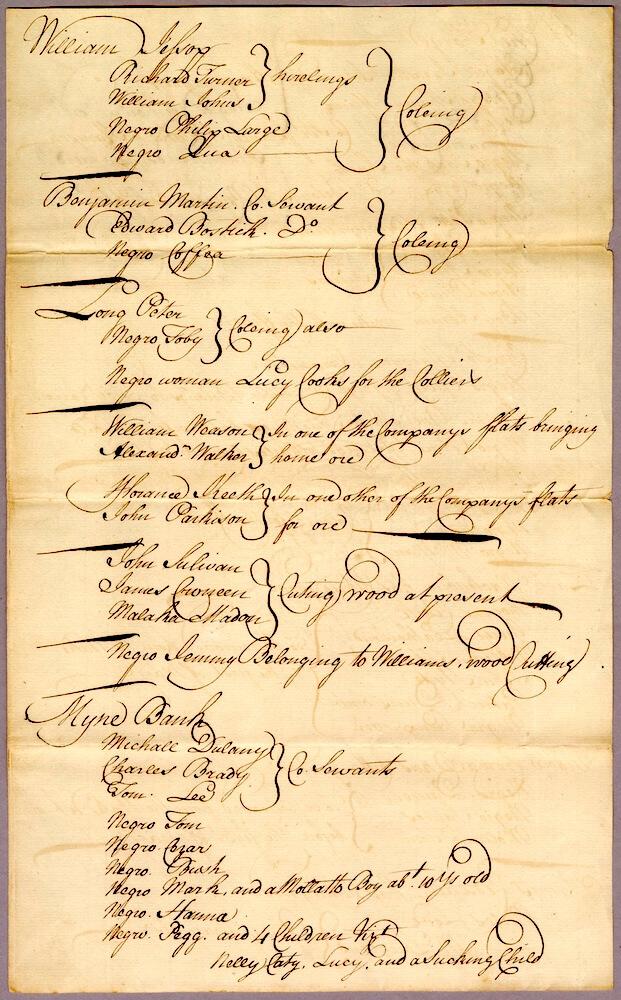 William Jessop
Richard Turner } hirelings
William Johns
Negro Philip Large
Negro Qua
Coleing
Benjamin Martin. Co. Servant
Edward Bostick. Do
Negro Coffea
Coleing
Long Peter
Negro Toby } Coleing also
Negro woman Lucy Cooks for the Colliers
William Weason } In one of the Companys flats bringing
Alexandr Walker } home ore
Florance Keeth } In one other of the Companys flats
John Parkison } for ore
John Sulivan
James } Cuting wood at present
Malaka Madon
Negro Jemmy Belonging to Williams. wood Cutting
Myne Bank
Michall Dulany
Charles Brady } Co. Servants
Tom. Lee
Negro Tom
Negro. Cezar
Negro. Bush
Negro Mark, and a Mollatto Boy abt. 10 Ys old
Negro. Hanna
Negro. Pegg. and 4 Children Vizt
Nelly Caty, Lucy, and a Sucking Child